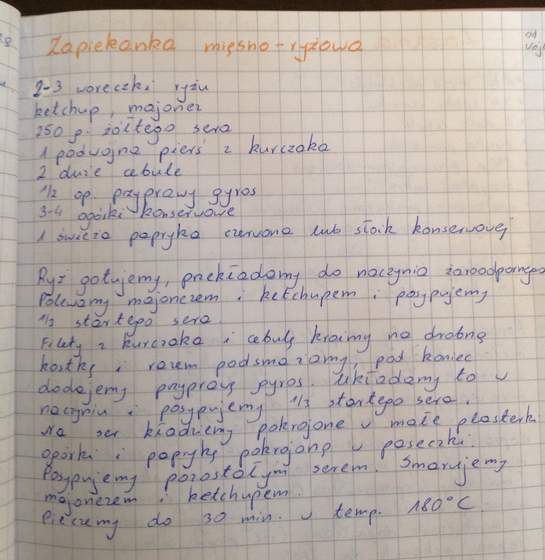 Zapiekanka mięsno-ryżowa
od
2-3 woreczki ryżu
ketchup, majonez
250 g. żółtego sera
1 podwójna pierś z kurczaka
2 duże cebule
1/2 op. przyprawy gyros
3-4 ogórki konserwowe
1 świeża papryka czerwona lub słoik konserwowej
Ryż gotujemy, przekładamy do naczynia żaroodpornego
Polewamy majonezem i ketchupem i posypujemy
1/3 startego sera
Filety z kurczaka i cebulę kroimy na drobną
kostkę i razem podsmażamy, pod koniec
dodajemy przyprawę gyros. Układamy to w
naczyniu i posypujemy 1/3 startego sera.
Na ser kładziemy pokrojone w małe plasterki
ogórki i paprykę pokrojoną w paseczki.
Posypujemy pozostałym serem. Smarujemy
majonezem i ketchupem.
Pieczemy do 30 min. w temp. 180°C.